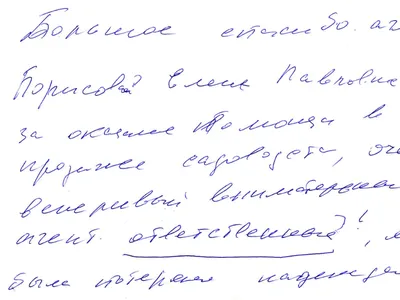 Большое спасибо. аг
Борисовой Елене Павловне
за оказание помощи в
продаже садоводства, оче
вежливый внимательный
агент. ответственный!,
была потеряна надежда